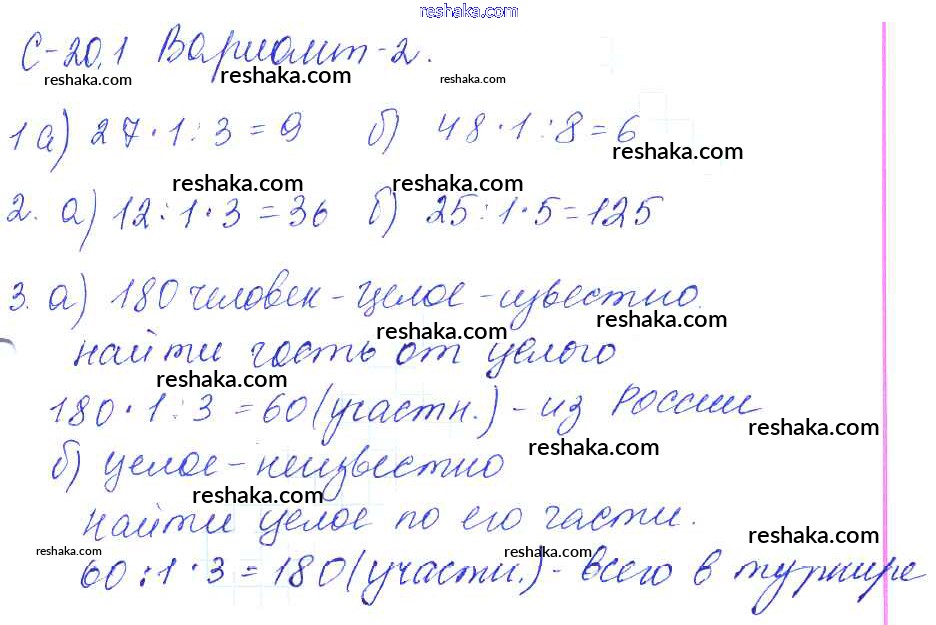 reshaka.com
С-20,1 Вариант-2.
reshaka.com reshaka.com reshaka.com
1 а) 27·1:3=9 б) 48·1:8=6
reshaka.com
reshaka.com reshaka.com
2. а) 12:1·3=36 б) 25:1·5=125
3. а) 180 человек-целое-известно.
reshaka.com reshaka.com
найти часть от целого
reshaka.com
180·1:3=60(участн.)-из России
reshaka.com reshaka.com
б) целое-неизвестно
reshaka.com
найти целое по его части.
reshaka.com reshaka.com reshaka.com
60:1·3=180(участн.)-всего в турнире